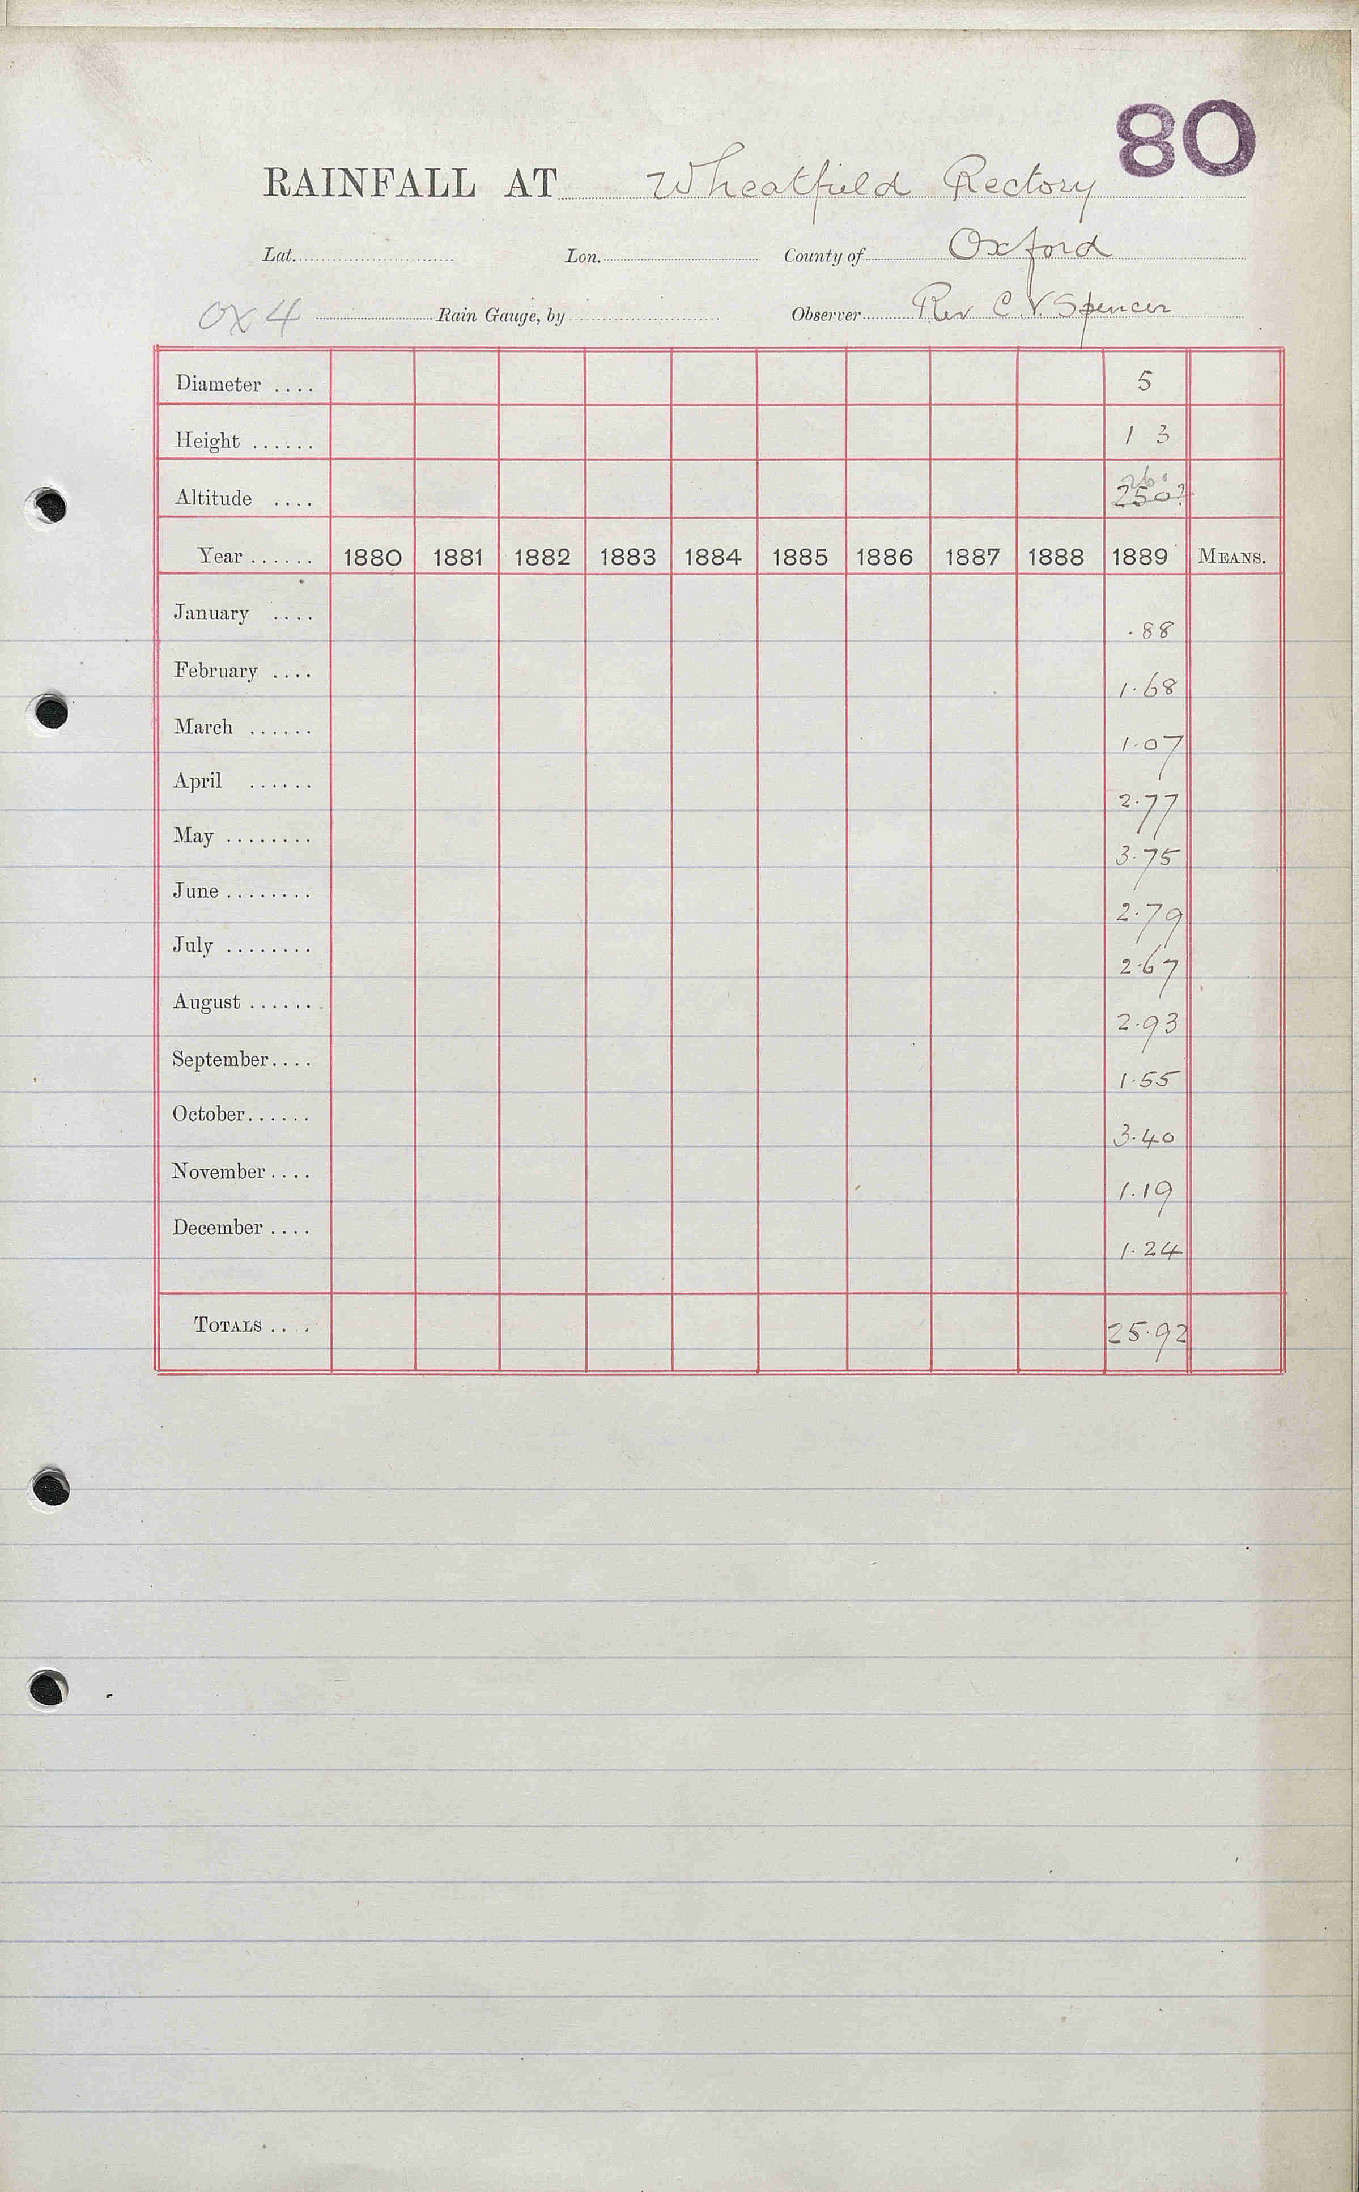 80
RAINFALL AT Wheatfield Rectory
Lat. Lon. County of Oxford
Ox 4 Rain Gauge, by Observer Rev C. V. Spencer
Diameter .... 5
Height ...... 1 3
Altitude .... 250?
Year ...... 1880 1881 1882 1883 1884 1885 1886 1887 1888 1889 MEANS.
January .... .88
February .... 1.68
March ...... 1.07
April ...... 2.77
May ........ 3.75
June ........ 2.79
July ........ 2.67
August ...... 2.93
September.... 1.55
October...... 3.40
November .... 1.19
December .... 1.24
TOTALS .... 25.92